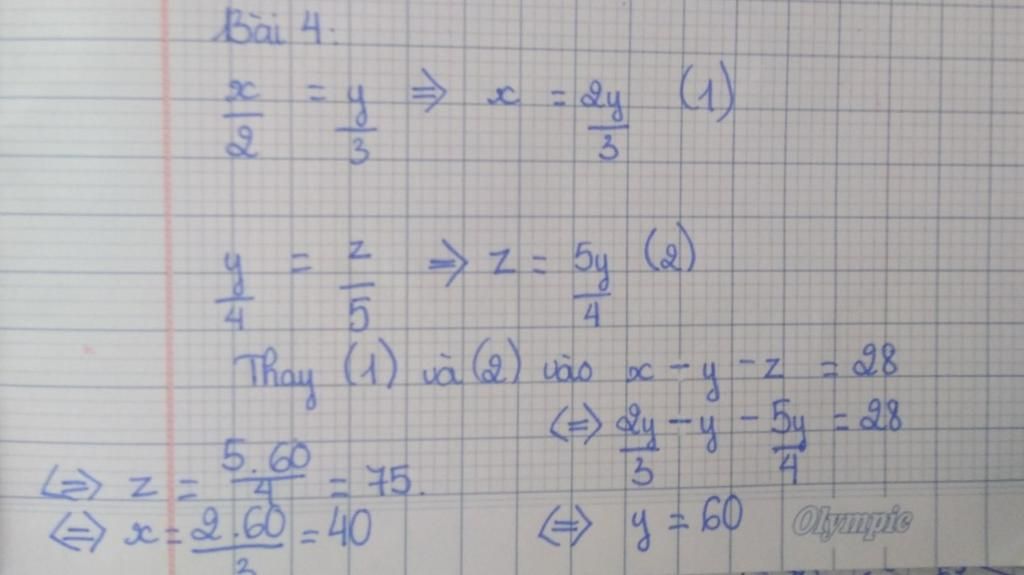 Bài 4:
x/2 = y/3 ⇒ x = 2y/3 (1)
y/4 = z/5 ⇒ z = 5y/4 (2)
Thay (1) và (2) vào x - y - z = 28
⇔ 2y/3 - y - 5y/4 = 28
⇔ y = 60
⇔ z = 5.60/4 = 75.
⇔ x = 2.60/3 = 40
Olympic